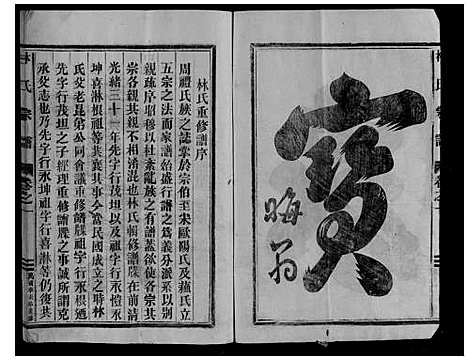 寶
晦翁
林氏重修譜序
周禮氏族之誌掌於宗伯至宋歐陽氏及蘇氏立
五宗之法而家譜始盛行譜之為義分派系以別
親疏序昭穆以杜紊亂族之有譜蓋欲使各宗其
宗各親其親不容混也林氏輯修譜牒在前清
光緒三十一年先字行茂坦以及祖字行永愷永
坤喜淋根祖等共襄其事今當民國成立之時林
氏父老昆弟公同會議重修譜牒祖字行永根迺
先字行茂坦之子經理重修譜牒之事誠所謂克
承父志也乃先字行永坤祖字行喜淋等仍復共
林氏宗譜
卷之一